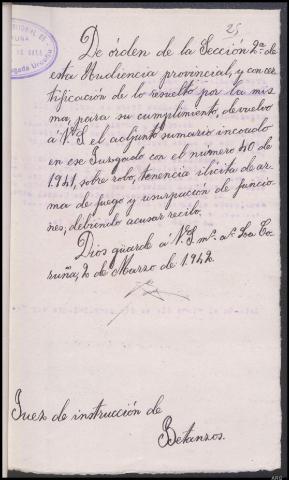 25
De órden de la Sección 2ª. de
esta Audiencia provincial, y con cer-
tificación de lo resuelto por la mis-
ma, para su cumplimiento, devuelvo
a V. S. el adjunto sumario incoado
en ese Juzgado con el número 40 de
1.941, sobre robo, tenencia ilícita de ar-
ma de fuego y usurpación de funcio-
nes, debiendo acusar recibo.
Dios guarde a V. S. mˢ. aˢ. La Co-
ruña, 2 de Marzo de 1.942.
Juez de instrucción de
Betanzos.